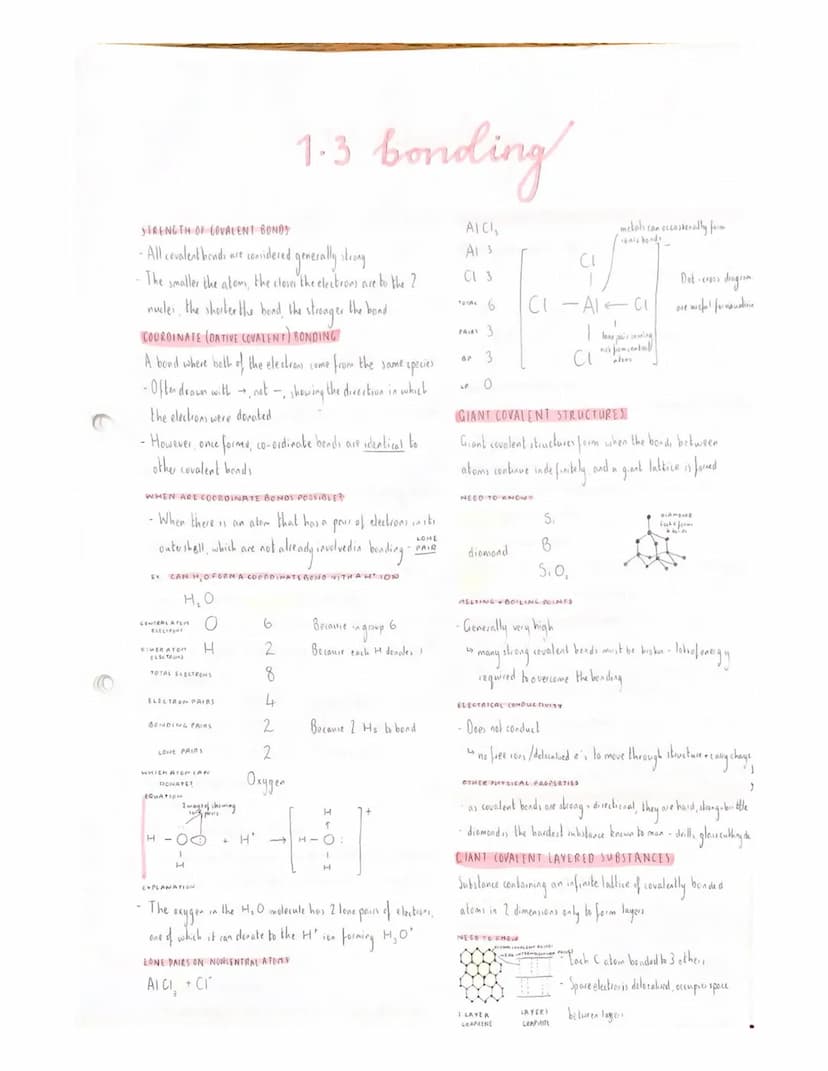 1.3 bonding
STRENGTH OF COVALENT BONDS
- All covalent bonds are considered generally strong
- The smaller the atom, the closer the electrons are to the 2
nuclei, the shorter the bond, the stronger the bond
COORDINATE (DATIVE COVALENT) BONDING
A bond where both of the electrons come from the same species
- Often drawn with →, not —, showing the direction in which
the electrons were donated
- However, once formed, co-ordinate bonds are identical to
other covalent bonds
WHEN ARE COORDINATE BONDS POSSIBLE?
- When there is an atom that has a pair of electrons in its
outer shell, which are not already involved in bonding - LONE
PAIR
EX. CAN H₂O FORM A COORDINATE BOND WITH A H⁺ ION
H₂O
CENTRAL ATOM ELECTRONS O 6 Because in group 6
OTHER ATOM ELECTRONS H 2 Because each H donates 1
TOTAL ELECTRONS 8
ELECTRON PAIRS 4
BONDING PAIRS 2 Because 2 Hs to bond
LONE PAIRS 2
WHICH ATOM CAN DONATE? Oxygen
EQUATION
2 ways of showing
lone pairs
H
H – O + H⁺ → H – O : +
H H
EXPLANATION
- The oxygen in the H₂O molecule has 2 lone pairs of electrons,
one of which it can donate to the H⁺ ion forming H₃O⁺
LONE PAIRS ON NONCENTRAL ATOMS
AlCl₃ + Cl⁻
AlCl₃
Al 3
Cl 3
TOTAL 6
PAIRS 3
BP 3
LP 0
metals can occasionally form
ionic bonds
Cl
Cl – Al ← Cl
Cl
lone pair coming
not from central
atom
Dot-cross diagram
are useful for
GIANT COVALENT STRUCTURES
Giant covalent structures form when the bonds between
atoms continue indefinitely, and a giant lattice is formed
NEED TO KNOW
Si
diamond B
SiO₂
DIAMOND
MELTING + BOILING POINTS
- Generally very high
↳ many strong covalent bonds must be broken - lots of energy
required to overcome the bonding
ELECTRICAL CONDUCTIVITY
- Does not conduct
↳ no free ions/delocalised e⁻s to move through structure + carry charge
OTHER PHYSICAL PROPERTIES
- as covalent bonds are strong + directional, they are hard, strong + brittle
- diamond is the hardest substance known to man - drills, glass cutting
GIANT COVALENT LAYERED SUBSTANCES
Substance containing an infinite lattice of covalently bonded
atoms in 2 dimensions only to form layers
NEED TO KNOW
STRONG COVALENT BONDS
WEAK INTERMOLECULAR FORCES
- Each C atom bonded to 3 others
- Spare electron is delocalised, occupies space
between layers
1 LAYER
GRAPHENE
LAYERS
GRAPHITE